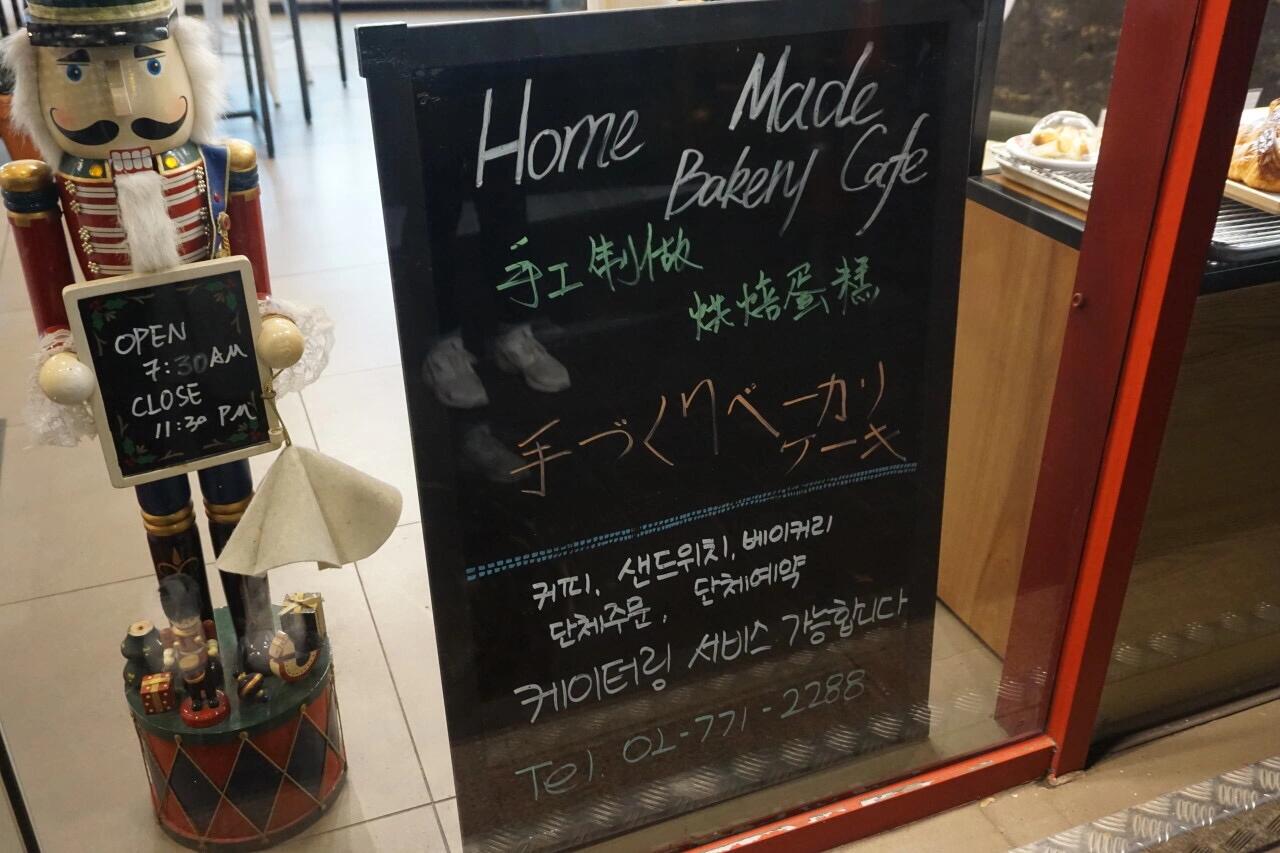 OPEN
7:30 AM
CLOSE
11:30 PM
Home Made
Bakery Cafe
手工制做
烘焙蛋糕
手づくりベーカリ
ケーキ
커피, 샌드위치, 베이커리
단체주문, 단체예약
케이터링 서비스 가능합니다
Tel. 02-771-2288